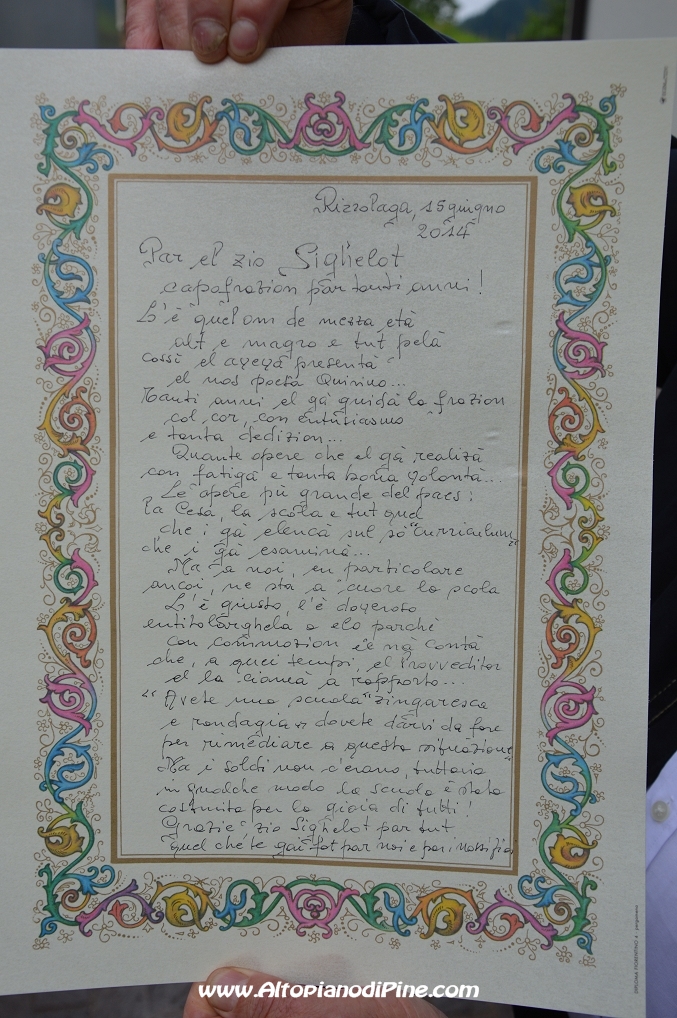 Rizzolaga, 15 giugno
2014
Par el zio Sighelot
capofrazion par tanti anni!
L'è quel om de mezza età
alt e magro e tut pelà
cossì el aveva presentà
el nos poeta Quirino...
Tanti anni el gà guidà la frazion
col cor, con entusiasmo
e tanta dedizion...
Quante opere che el gà realizà
con fatiga e tanta bona volontà...
Le opere più grande del paes:
la Cesa, la scola e tut quel
che i gà elencà sul sò "curriculum"
che i gà esaminà...
Ma a noi, en particolare
ancoi, ne sta a cuore la scola
L'è giusto, l'è doveroso
entitolarghela a elo parchè
con commozion el n'à contà
che, a quei tempi, el Provveditor
el la ciamà a rapporto...
"Avete una scuola "zingaresca
e randagia" dovete darvi da fare
per rimediare a questa situazione"
Ma i soldi non c'erano, tuttavia
in qualche modo la scuola è stata
costruita per la gioia di tutti!
Grazie zio Sighelot par tut
quel che te gai fat par noi e par i nossi fioi
www.AltopianodiPine.com